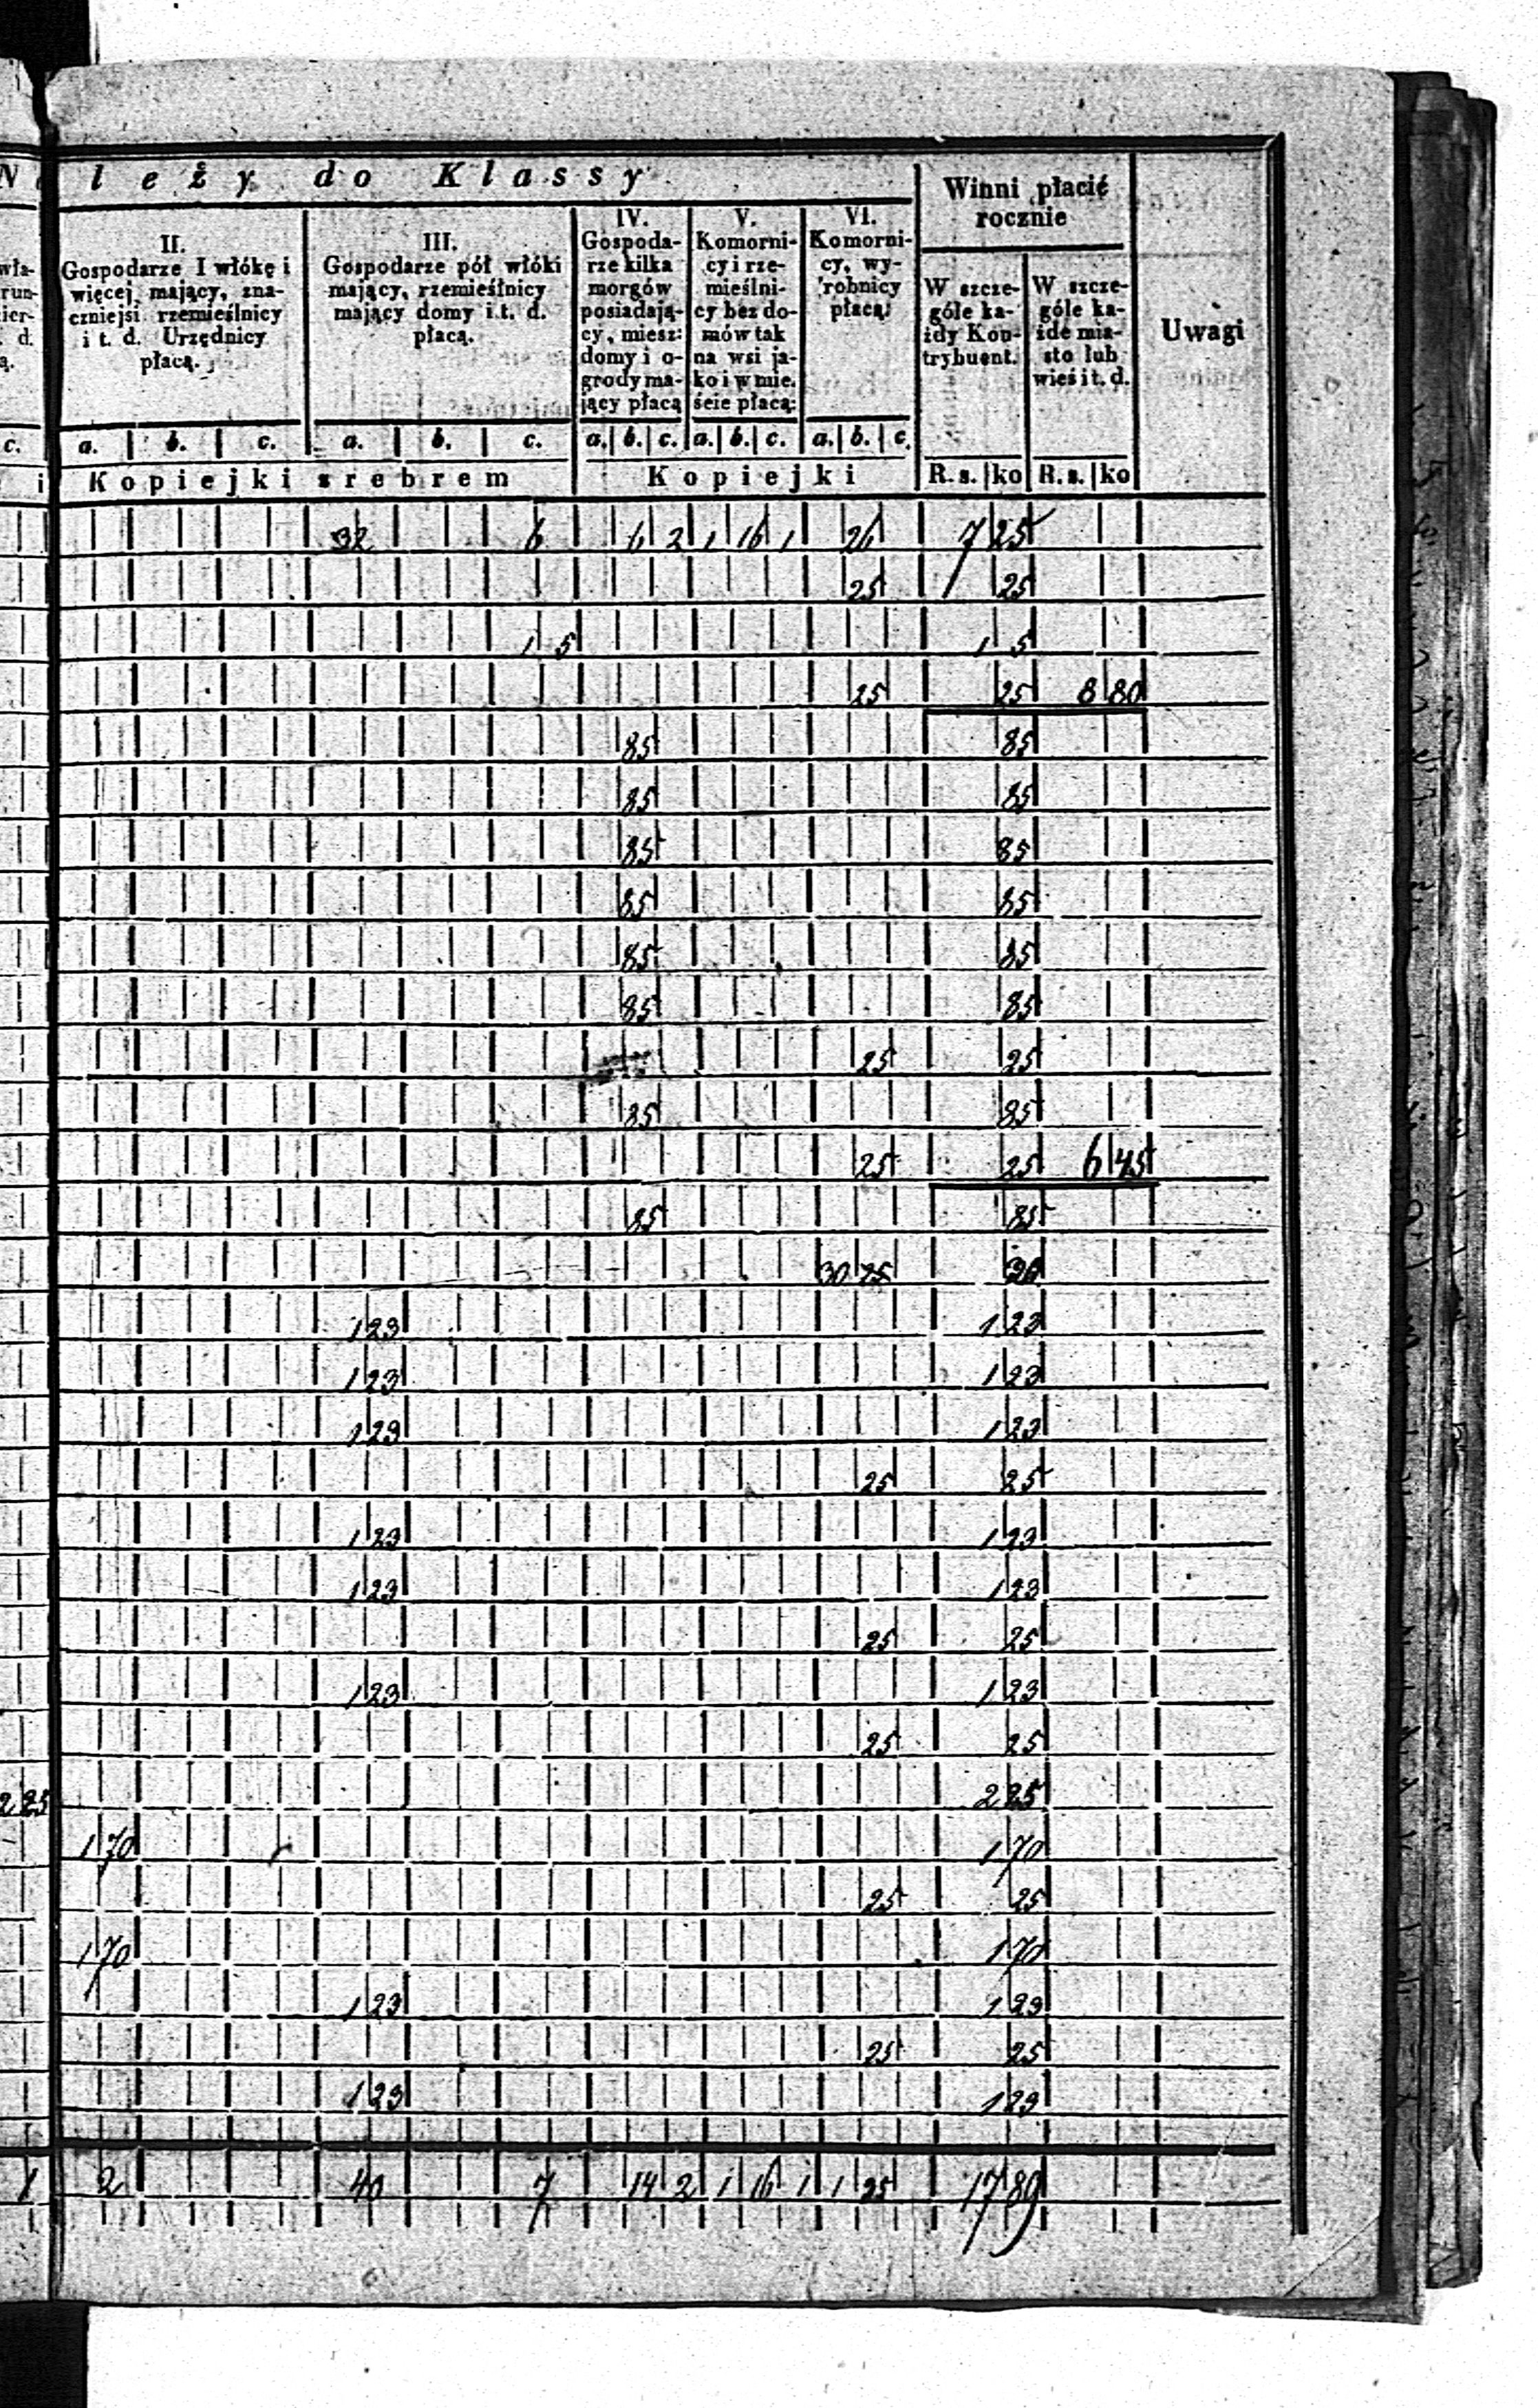 N a l e ż y do Klassy
Winni płacić rocznie
Uwagi
II.
Gospodarze I włókę i
więcej mający, zna-
czniejsi rzemieślnicy
i t. d. Urzędnicy
płacą.
III.
Gospodarze pół włóki
mający, rzemieślnicy
mający domy i.t. d.
płacą.
IV.
Gospoda-
rze kilka
morgów
posiadają-
cy, miesz:
domy i o-
grody ma-
jący płacą
V.
Komorni-
cy i rze-
mieślni-
cy bez do-
mów tak
na wsi ja-
ko i w mie.
ście płacą:
VI.
Komorni-
cy, wy-
robnicy
płacą:
W szcze-
góle ka-
żdy Kon-
trybuent.
W szcze-
góle ka-
żde mia-
sto lub
wieś i t. d.
c. a. b. c. a. b. c. a. b. c. a. b. c. a. b. c.
i Kopiejki srebrem Kopiejki R. s. ko R. s. ko
32 6 6 2 1 16 1 26 7 25
25 25
1 5 1 5
25 25 8 80
85 85
85 85
85 85
85 85
85 85
85 85
25 25
85 85
25 25 6 45
85 85
30 25
1 23 1 23
1 23 1 23
1 23 1 23
25 25
1 23 1 23
1 23 1 23
25 25
1 23 1 23
25 25
2 25 2 25
1 70 1 70
25 25
1 70 1 70
1 23 1 23
25 25
1 23 1 23
1 2 40 7 14 2 1 16 1 1 25 17 89